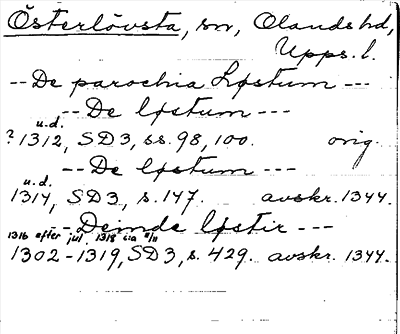 Österlövsta, sn, Olands hd,
Upps. l.
-- De parochia Løstum ---
-- De løstum ---
u.d.
? 1312, SD 3, ss. 98, 100. orig.
-- De løstum ---
u.d.
1314, SD 3, s. 147. avskr. 1344.
-- Deinde løstir ---
1316 efter jul, 1318
1302-1319, SD 3, s. 429. avskr. 1344.